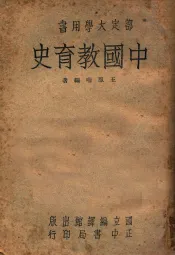 部定大學用書
中國教育史
王鳳喈編著
國立編譯館出版
正中書局印行